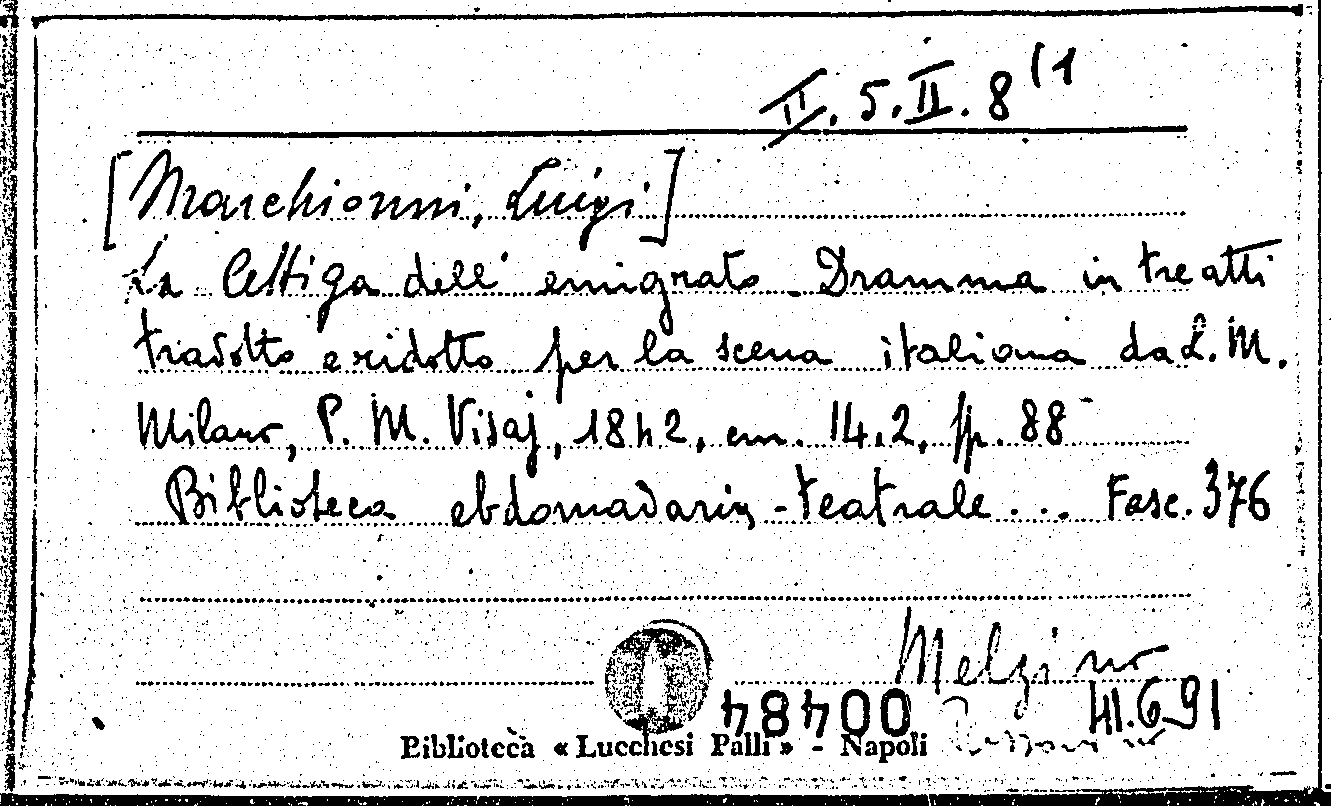 II. 5. II. 8 (1
[Marchionni, Luigi]
La lettiga dell' emigrato - Dramma in tre atti
tradotto e ridotto per la scena italiana da L. M.
Milano, P. M. Visaj, 1842, cm. 14.2, pp. 88
Biblioteca ebdomadaria - teatrale ... Fasc. 376
Melzi
00484 III.6.91
Biblioteca « Lucchesi Palli » - Napoli